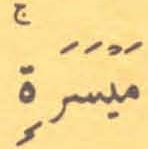 مَيْسَرَةٍ ۚ